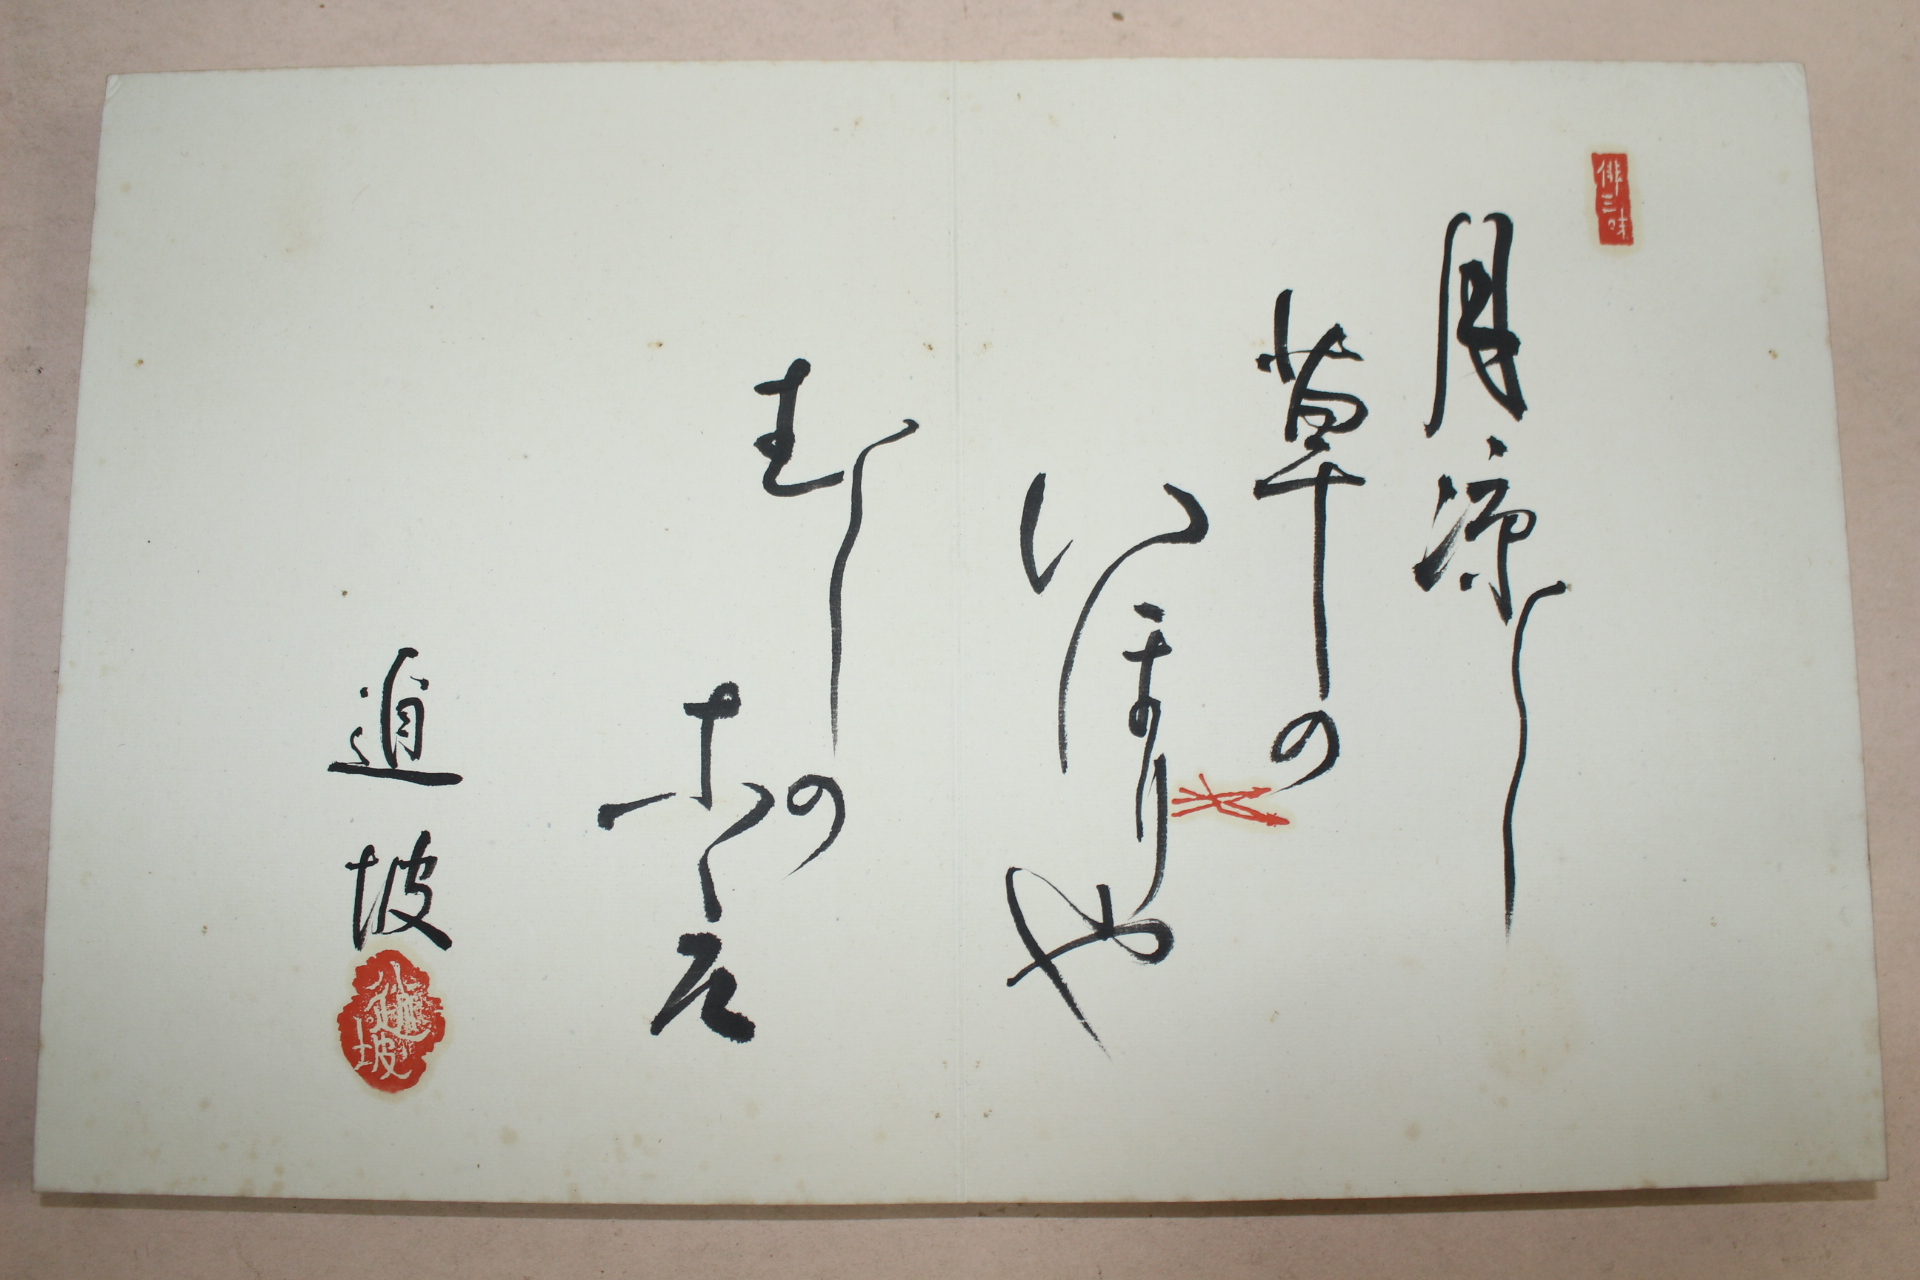 俳三昧
月涼し
草の
いほりや
むしの
こゑ
逍坡